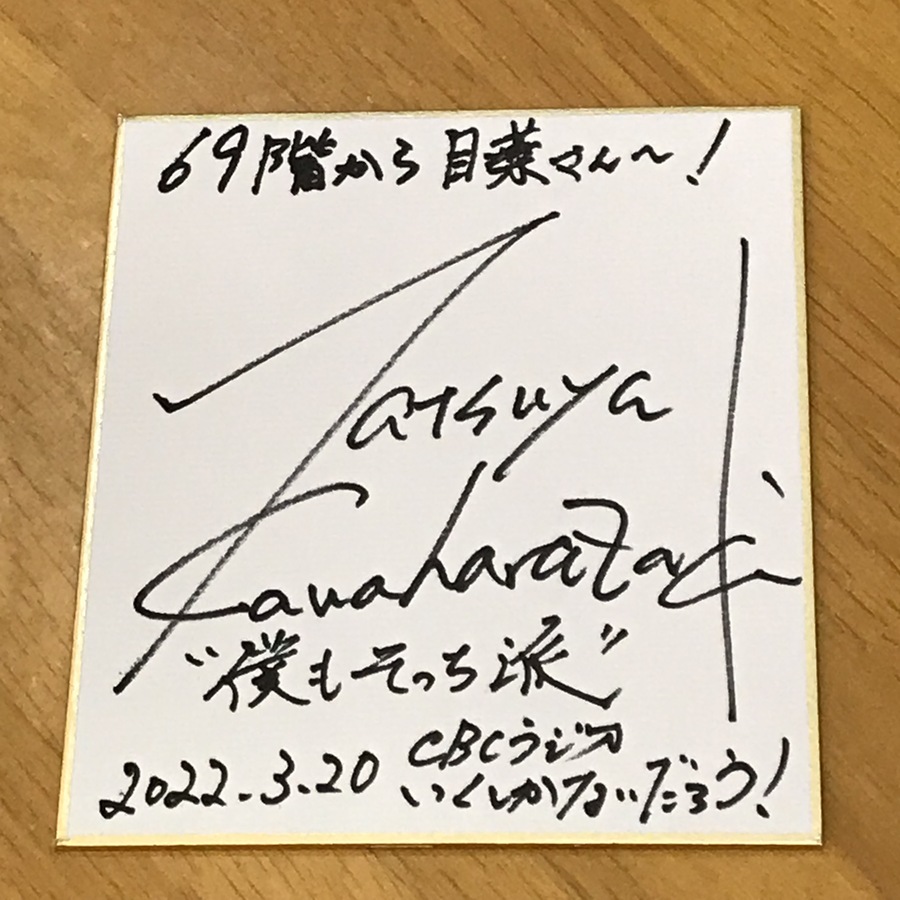 69階から目薬さん〜!
Tatsuya
Kawaharazaki
"僕もそっち派"
2022.3.20 CBCラジオ
いくしかないだろう!